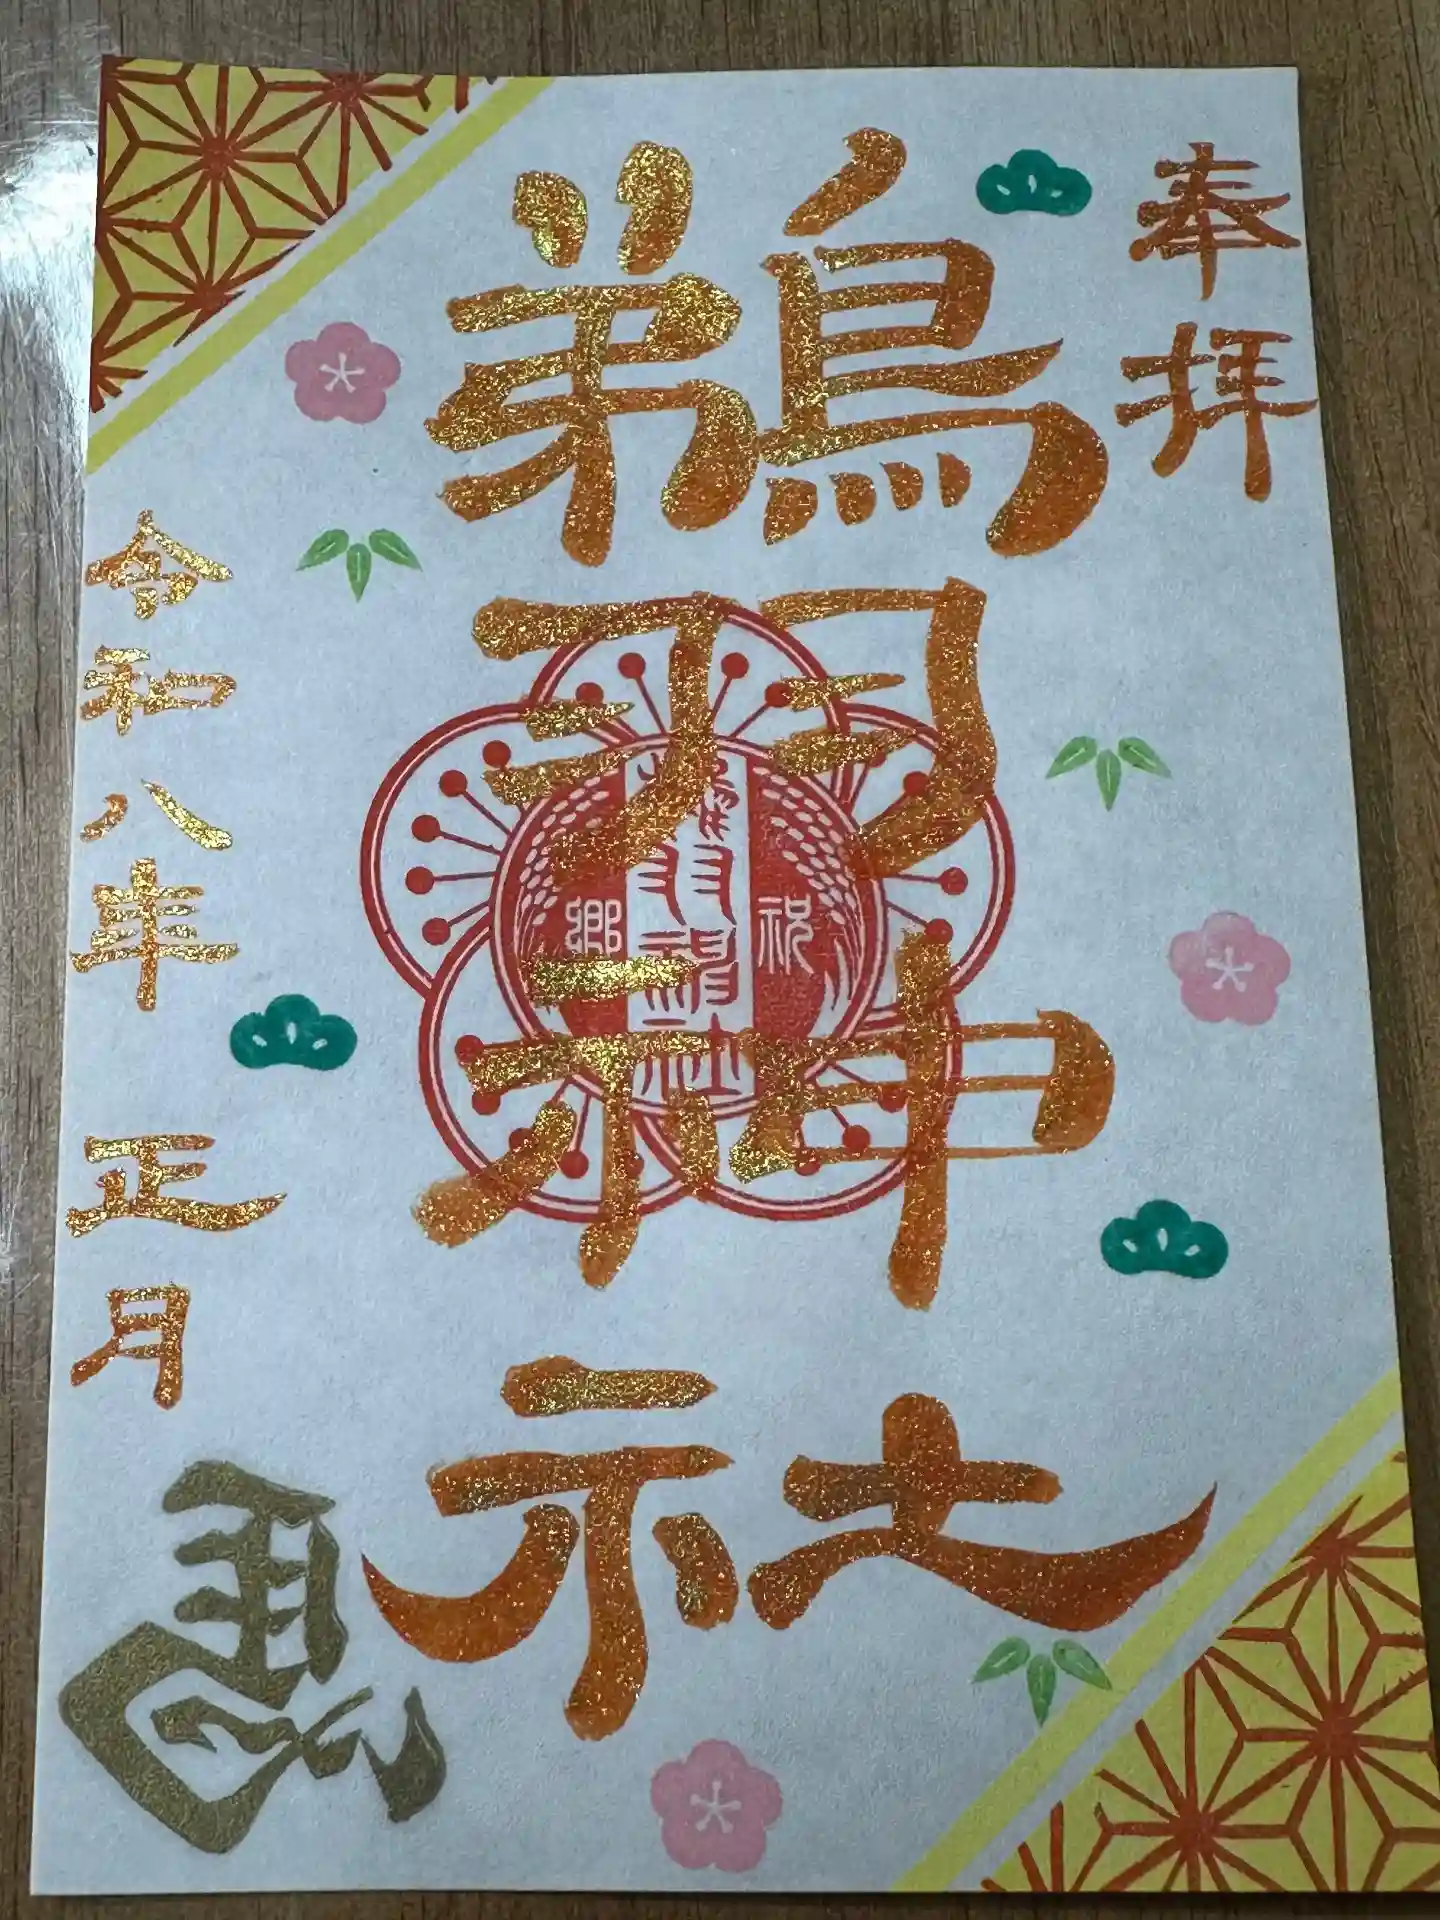 奉拝
鵜羽神社
祝
郷
鵜羽神社
令和八年 正月
馬